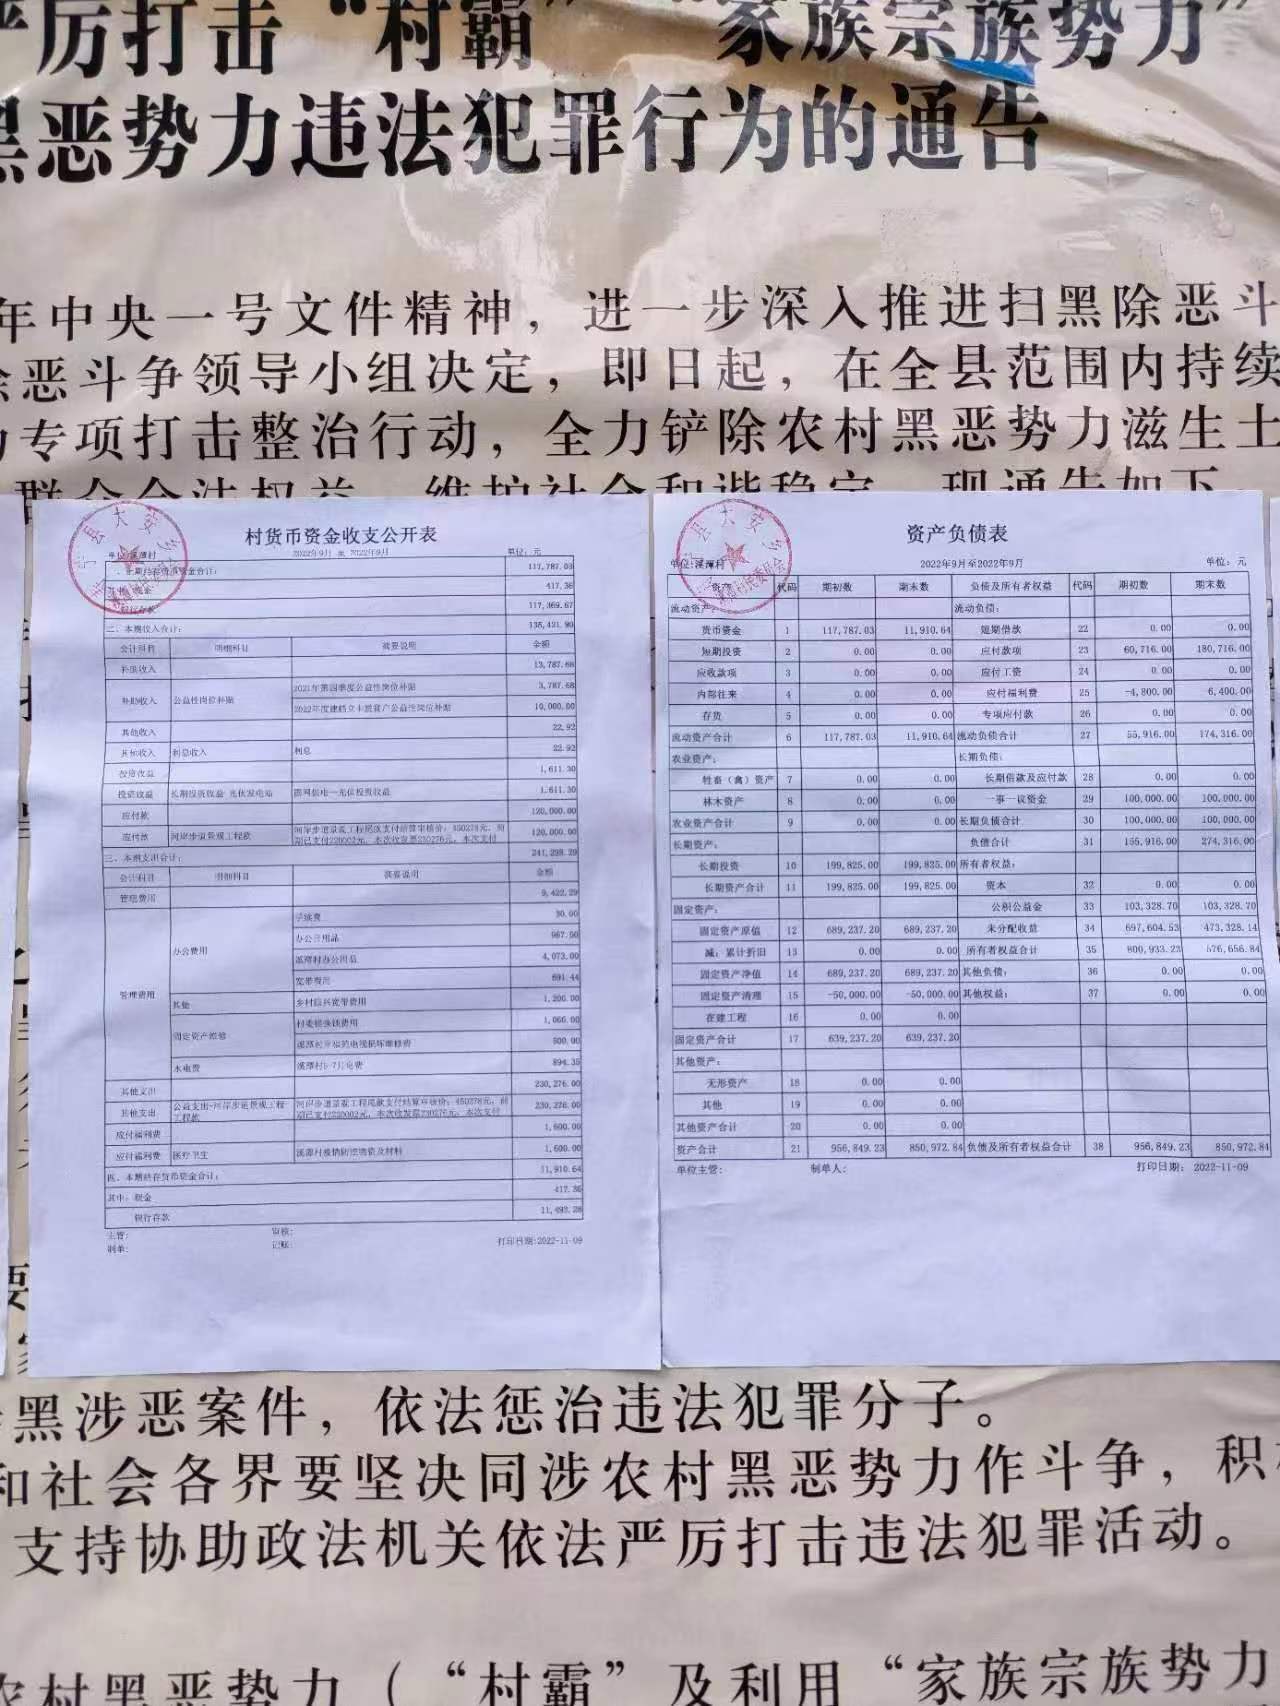 严厉打击“村霸” “家族宗族势力”
黑恶势力违法犯罪行为的通告
年中央一号文件精神，进一步深入推进扫黑除恶斗
除恶斗争领导小组决定，即日起，在全县范围内持续
专项打击整治行动，全力铲除农村黑恶势力滋生土
群众合法权益，维护社会和谐稳定，现通告如下：
村货币资金收支公开表
2022年9月 至 2022年9月 单位：元
117,787.03
417.36
117,369.67
二、本期收入合计： 135,421.90
会计科目 明细科目 摘要说明 金额
补助收入 13,787.68
补助收入 公益性岗位补贴 2021年第四季度公益性岗位补贴 3,787.68
2022年度建档立卡脱贫户公益性岗位补贴 10,000.00
其他收入 22.92
其他收入 利息收入 利息 22.92
投资收益 1,611.30
投资收益 长期投资收益-光伏发电站 国网供电—光伏投资收益 1,611.30
应付款 120,000.00
应付款 河岸步道景观工程款 120,000.00
三、本期支出合计： 241,298.29
会计科目 明细科目 摘要说明 金额
管理费用 9,422.29
管理费用 办公费用 手续费 30.00
办公日用品 967.00
4,073.00
宽带费用 691.44
其他 乡村振兴宽带费用 1,200.00
固定资产维修 1,066.00
500.00
水电费 894.35
其他支出 230,276.00
其他支出 公益支出-河岸步道景观工程工程款 230,276.00
应付福利费 1,600.00
应付福利费 医疗卫生 1,600.00
四、本期结存货币资金合计： 11,910.64
其中：现金 417.36
银行存款 11,493.28
主管： 审核：
制单： 记账： 打印日期:2022-11-09
资产负债表
单位:溪潭村 2022年9月至2022年9月 单位：元
资产 代码 期初数 期末数 负债及所有者权益 代码 期初数 期末数
流动资产： 流动负债：
货币资金 1 117,787.03 11,910.64 短期借款 22 0.00 0.00
短期投资 2 0.00 0.00 应付款项 23 60,716.00 180,716.00
应收款项 3 0.00 0.00 应付工资 24 0.00 0.00
内部往来 4 0.00 0.00 应付福利费 25 -4,800.00 -6,400.00
存货 5 0.00 0.00 专项应付款 26 0.00 0.00
流动资产合计 6 117,787.03 11,910.64 流动负债合计 27 55,916.00 174,316.00
农业资产： 长期负债：
牲畜（禽）资产 7 0.00 0.00 长期借款及应付款 28 0.00 0.00
林木资产 8 0.00 0.00 一事一议资金 29 100,000.00 100,000.00
农业资产合计 9 0.00 0.00 长期负债合计 30 100,000.00 100,000.00
长期资产： 负债合计 31 155,916.00 274,316.00
长期投资 10 199,825.00 199,825.00 所有者权益：
长期资产合计 11 199,825.00 199,825.00 资本 32 0.00 0.00
固定资产： 公积公益金 33 103,328.70 103,328.70
固定资产原值 12 689,237.20 689,237.20 未分配收益 34 697,604.53 473,328.14
减：累计折旧 13 0.00 0.00 所有者权益合计 35 800,933.23 576,656.84
固定资产净值 14 689,237.20 689,237.20 其他负债： 36 0.00 0.00
固定资产清理 15 -50,000.00 -50,000.00 其他权益： 37 0.00 0.00
在建工程 16 0.00 0.00
固定资产合计 17 639,237.20 639,237.20
其他资产：
无形资产 18 0.00 0.00
其他 19 0.00 0.00
其他资产合计 20 0.00 0.00
资产合计 21 956,849.23 850,972.84 负债及所有者权益合计 38 956,849.23 850,972.84
单位主管: 制单人: 打印日期: 2022-11-09
黑涉恶案件，依法惩治违法犯罪分子。
和社会各界要坚决同涉农村黑恶势力作斗争，积
支持协助政法机关依法严厉打击违法犯罪活动。
农村黑恶势力（“村霸”及利用“家族宗族势力